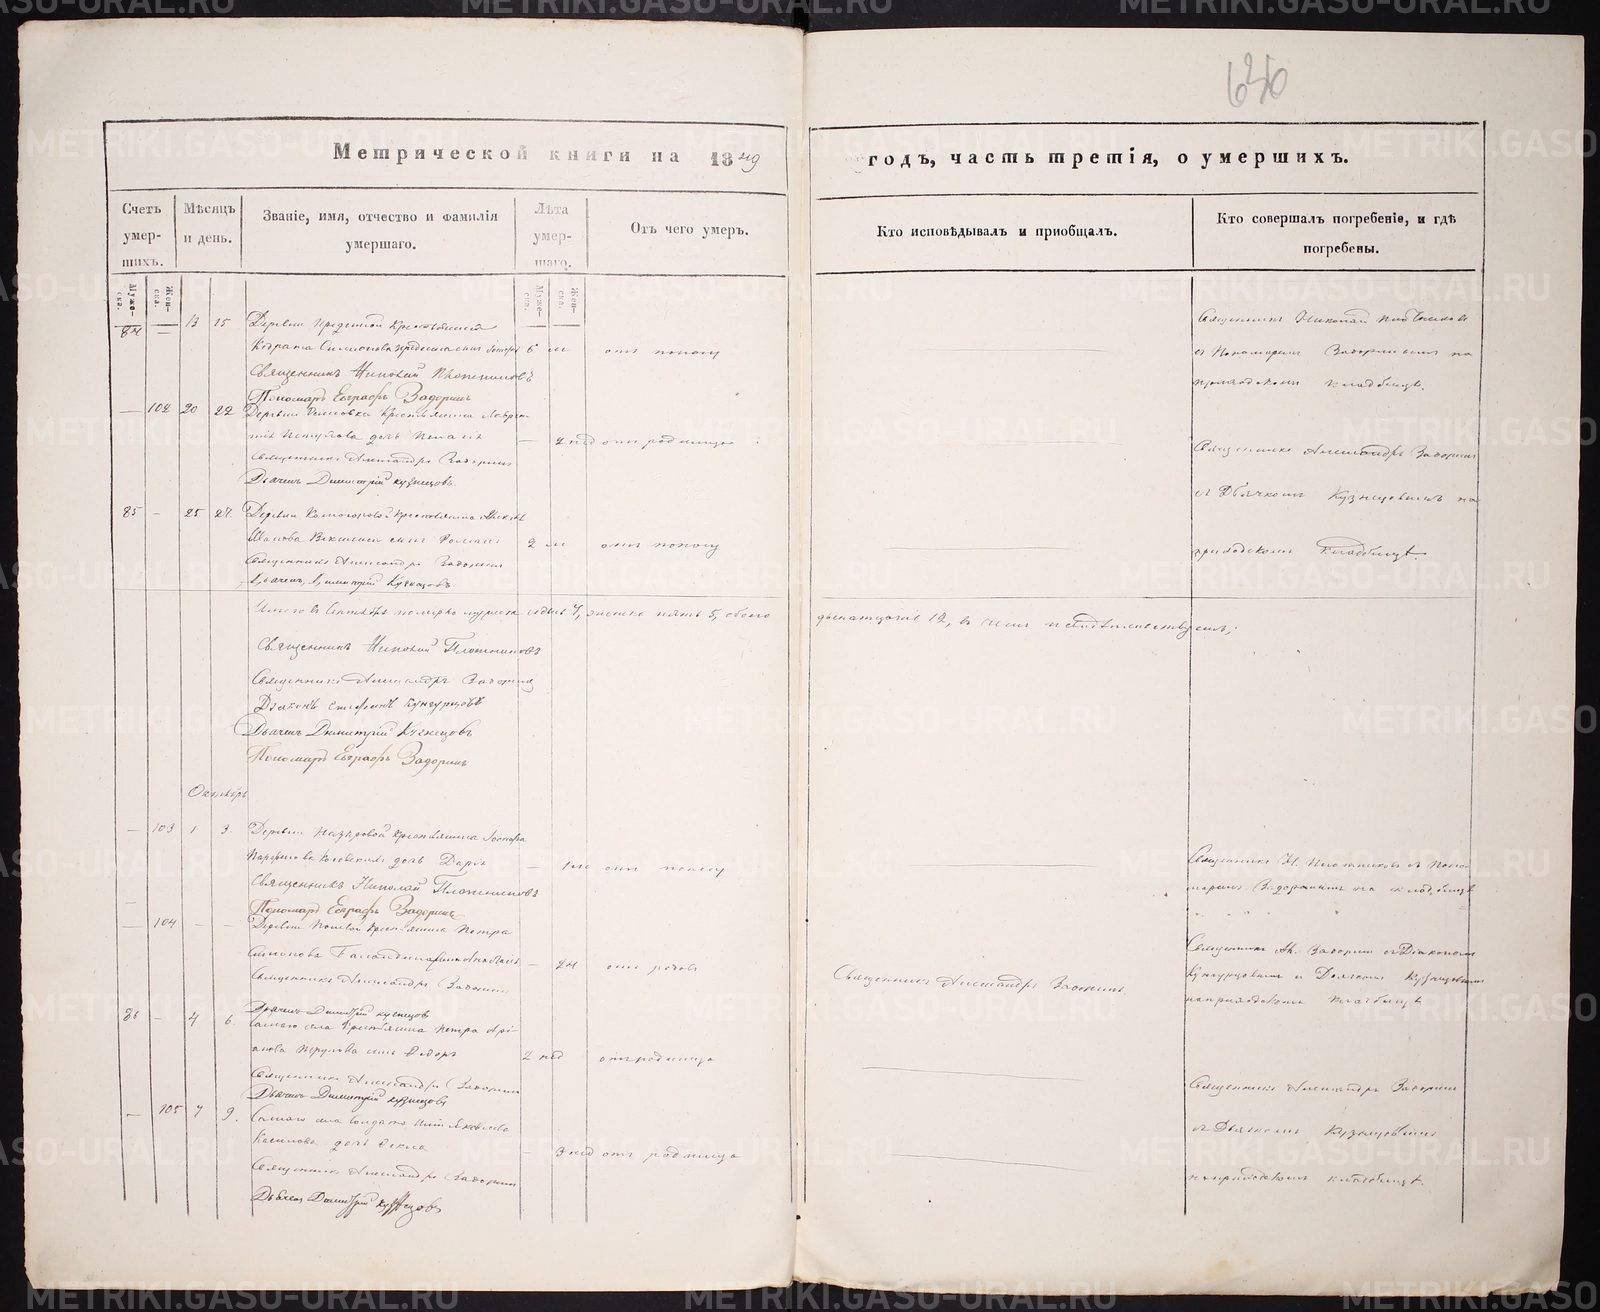 636
Метрической книги на 1849
годъ, часть третія, о умершихъ.
Счетъ умер-шихъ.
Мѣсяцъ и день.
Званіе, имя, отчество и фамилія умершаго.
Лѣта умер-шаго.
Отъ чего умеръ.
Кто исповѣдывалъ и приобщалъ.
Кто совершалъ погребеніе, и гдѣ погребены.
Муже-ска.
Жен-ска.
Муже-ска.
Жен-ска.
84 — 13 15 Деревни
6 м отъ поносу
Священникъ Николай Плотниковъ
Пономарь Евграфъ Задоринъ
Священникъ Николай Плотниковъ
съ Пономаремъ Задоринымъ на
приходскомъ кладбищѣ.
— 102 20 22 Деревни крестьянина Лаврен-
тія дочь
— 2 нед отъ родимца
Священникъ Александръ Задоринъ
Дьячекъ Димитрій Кузнецовъ.
Священникъ Александръ Задоринъ
съ Дьячкомъ Кузнецовымъ на
приходскомъ кладбищѣ.
85 — 25 27. Деревни крестьянина
сынъ Романъ 2 м отъ поносу
Священникъ Александръ Задоринъ
Дьячекъ Димитрій Кузнецовъ
Итого въ Сентябрѣ померло мужеска седмь 7, женска пять 5, обоего
двенатцать 12, въ чемъ и свидѣтельствуемъ;
Священникъ Николай Плотниковъ
Священникъ Александръ Задоринъ
Діаконъ Стефанъ Кунгурцовъ
Дьячекъ Димитрій Кузнецовъ
Пономарь Евграфъ Задоринъ
Октябрь
— 103 1 3. Деревни крестьянина
дочь Дарія — 1 м отъ поносу
Священникъ Николай Плотниковъ
Пономарь Евграфъ Задоринъ
Священникъ Н. Плотниковъ съ Поно-
маремъ Задоринымъ на кладбищѣ
— 104 — — Деревни крестьянина Петра
Симонова
— 24 отъ родовъ
Священникъ Александръ Задоринъ
Дьячекъ Димитрій Кузнецовъ
Священникъ Александръ Задоринъ
Священникъ Ал. Задоринъ съ Діакономъ
Кунгурцовымъ и Дьячкомъ Кузнецовымъ
на приходскомъ кладбищѣ
86 — 4 6. Самаго села Крестьянина Петра
сынъ Ѳедоръ 2 нед отъ родимца
Священникъ Александръ Задоринъ
Дьячекъ Димитрій Кузнецовъ
Священникъ Александръ Задоринъ
съ Дьячкомъ Кузнецовымъ
на приходскомъ кладбищѣ.
— 105 7 9. Самаго села Солдата
дочь Ѳекла — 3 нед отъ родимца
Священникъ Александръ Задоринъ
Дьячекъ Димитрій Кузнецовъ
METRIKI.GASO-URAL.RU